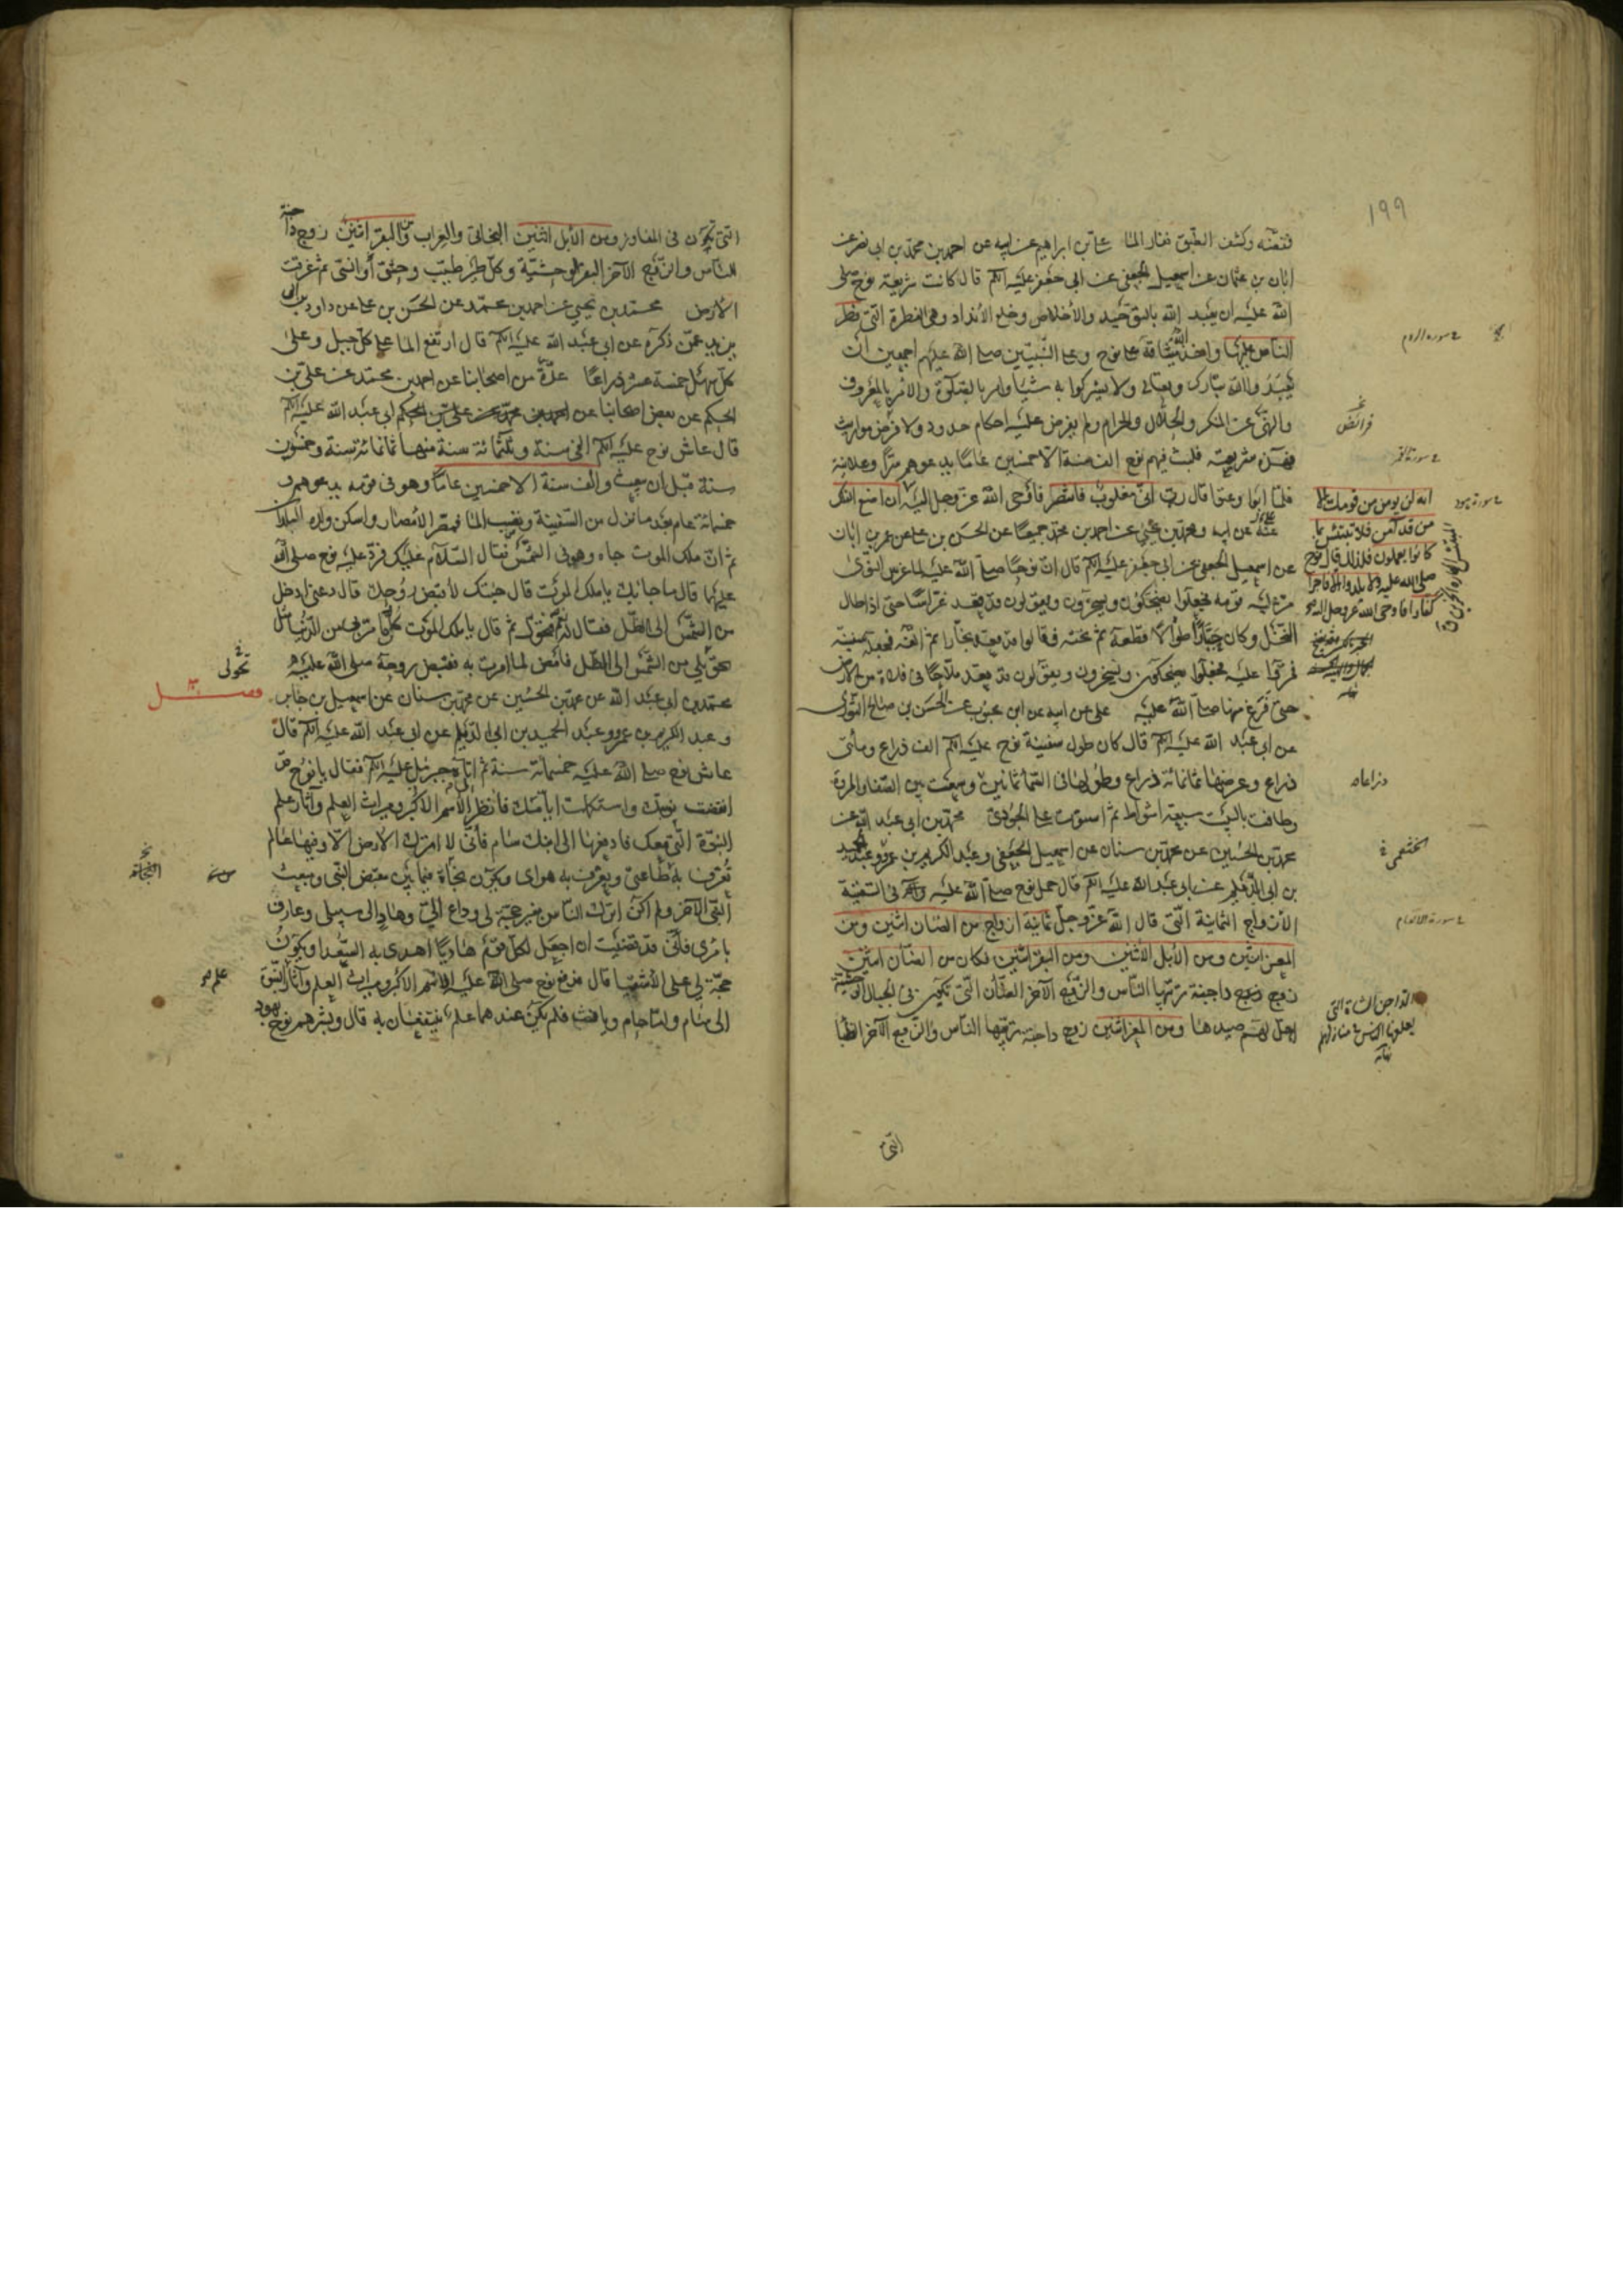 ١٩٩
فتفضه وكشف الطبق فغار الماء علي بن ابراهيم عن ابيه عن احمد بن محمد بن ابى نصر عن
ابان بن عثمان عن اسمعيل الجعفى عن ابى جعفر عليه السلام قال كانت شريعة نوح صلى
الله عليه ان يعبد الله بالتوحيد والأخلاص وخلع الأنداد وهى الفطرة التى فطر
الناس عليها واخذ الله ميثاقه على نوح وعلى النبيين صلى الله عليهم اجمعين ان
يعبدوا الله تبارك وتعالى ولا يشركوا به شيئا وامر بالصلوة والأمر بالمعروف
والنهى عن المنكر والحلال والحرام ولم يفرض عليه احكام حدود ولا فرض مواريث
فهذه شريعته فلبث فيهم نوح الف سنة الا خمسين عاما يدعوهم سرا وعلانية
فلما ابوا وعتوا قال رب انى مغلوب فانتصر فأوحى الله عز وجل اليه ان اصنع الفلك
عنه عن ابيه ومحمد بن يحيى عن احمد بن محمد جميعا عن الحسن بن على عن عمر بن ابان
عن اسمعيل الجعفى عن ابى جعفر عليه السلام قال ان نوحا صلى الله عليه لما غرس النوى
مر عليه قومه فجعلوا يضحكون ويسخرون ويقولون قد قعد غراسا حتى اذا طال
النخل وكان جبارا طوالا قطعه ثم نحته فقالوا قد قعد نجارا ثم الفه فجعله سفينة
فمروا عليه فجعلوا يضحكون ويسخرون ويقولون قد قعد ملاحا فى فلاة من الأرض
حتى فرغ منها صلى الله عليه على عن ابيه عن ابن محبوب عن الحسن بن صالح الثورى
عن ابى عبد الله عليه السلام قال كان طول سفينة نوح عليه السلام الف ذراع ومأتى
ذراع وعرضها ثمانمائة ذراع وطولها فى السماء ثمانين وسعت بين الصفا والمروة
وطافت بالبيت سبعة اشواط ثم استوت على الجودى محمد بن ابى عبد الله عن
محمد بن الحسين عن محمد بن سنان عن اسمعيل الجعفى وعبد الكريم بن عمرو وعبد الحميد
بن ابى الديلم عن ابى عبد الله عليه السلام قال حمل نوح صلى الله عليه فى السفينة
الأزواج الثمانية التى قال الله عز وجل ثمانية ازواج من الضان اثنين ومن
المعز اثنين ومن الأبل الأثنين ومن البقر اثنين فكان من الضان اثنين
زوج زوج داجنة يربيها الناس والزوج الآخر الضأن التى تكون فى الجبال الوحشية
احل لهم صيدها ومن المعز اثنين زوج داجنة يربيها الناس والزوج الآخر الظبا
سورة الروم
فرائض
سورة القمر
سورة هود
انه لن يومن من قومك الا
من قد آمن فلا تبتئس بما
كانوا يعملون فلذلك قال نوح
صلى الله عليه ولا يلدوا الا فاجرا
كفارا فاوحى الله عز وجل اليه
ذراعا
الخثعمى
سورة الانعام
الداجن الشاة التى
يعلفها الناس فى منازلهم
نهاية
التى
التى تكون فى المفاوز ومن الأبل اثنين البخاتى والعراب ومن البقر اثنين زوج داجنة
للناس والزوج الآخر البقر الوحشية وكل طير طيب وحشى أو انسى ثم غرقت
الأرض محمد بن يحيى عن احمد بن محمد عن الحسن بن على عن داود بن ابى
يزيد عمن ذكره عن ابى عبد الله عليه السلام قال ارتفع الماء على كل جبل وعلى
كل سهل خمسة عشر ذراعا عدة من اصحابنا عن احمد بن محمد عن على بن
الحكم عن بعض اصحابنا عن ابى عبد الله عليه السلام
قال عاش نوح عليه السلام الفى سنة وثلثمائة سنة منها ثمانمائة سنة وخمسون
سنة قبل ان يبعث والف سنة الا خمسين عاما وهو فى قومه يدعوهم و
خمسمائة عام بعد ما نزل من السفينة ونضب الماء فمصر الأمصار واسكن ولده البلدان
ثم ان ملك الموت جاءه وهو فى الشمس فقال السلام عليك فرد عليه نوح صلى الله
عليهما قال ما جاء بك يا ملك الموت قال جئتك لأقبض روحك قال دعنى ادخل
من الشمس الى الظل فقال له نعم فتحول ثم قال يا ملك الموت كل ما مر بى من الدنيا مثل
تحويلى من الشمس الى الظل فامض لما امرت به فقبض روحه صلى الله عليه
محمد بن ابى عبد الله عن محمد بن الحسين عن محمد بن سنان عن اسمعيل بن جابر
وعبد الكريم بن عمرو وعبد الحميد بن ابى الديلم عن ابى عبد الله عليه السلام قال
عاش نوح صلى الله عليه خمسمائة سنة ثم اتاه جبرئيل عليه السلام فقال يا نوح قد
انقضت نبوتك واستكملت ايامك فانظر الأسم الاكبر وميراث العلم وآثار علم
النبوة التى معك فادفعها الى ابنك سام فأنى لا اترك الارض الا وفيها عالم
تعرف به طاعتى ويعرف به هواى ويكون نجاة فيما بين مقبض النبى ومبعث
النبى الآخر ولم اكن اترك الناس بغير حجة لى وداع الى وهاد الى سبيلى وعارف
بامرى فأنى قد قضيت ان اجعل لكل قوم هاديا اهدى به السعدا ويكون
حجة لى على الأشقيا قال فدفع نوح صلى الله عليه الاسم الاكبر وميراث العلم وآثار علم النبوة
الى سام واما حام ويافث فلم يكن عندهما علم ينتفعان به قال وبشرهم نوح بهود
تحولى
فصل
النجاة
علم